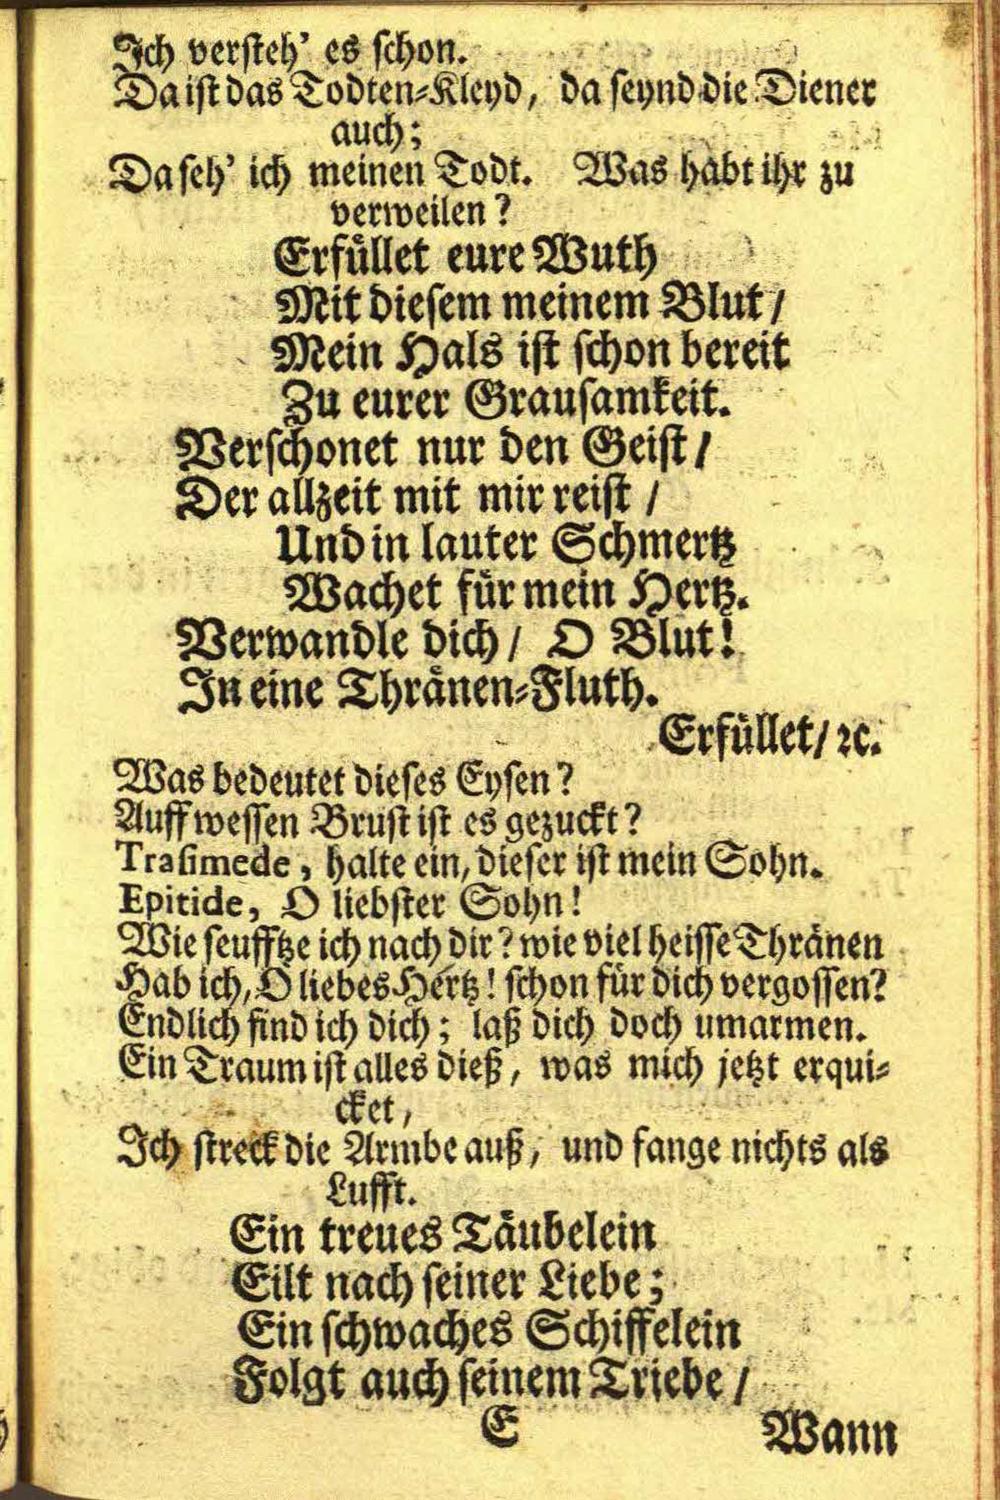 Ich versteh' es schon.
Da ist das Todten-Kleyd, da seynd die Diener
auch;
Da seh' ich meinen Todt. Was habt ihr zu
verweilen?
Erfüllet eure Wuth
Mit diesem meinem Blut /
Mein Hals ist schon bereit
Zu eurer Grausamkeit.
Verschonet nur den Geist /
Der allzeit mit mir reist /
Und in lauter Schmertz
Wachet für mein Hertz.
Verwandle dich / O Blut!
In eine Thränen-Fluth.
Erfüllet / ꝛc.
Was bedeutet dieses Eysen?
Auff wessen Brust ist es gezuckt?
Trasimede, halte ein, dieser ist mein Sohn.
Epitide, O liebster Sohn!
Wie seufftze ich nach dir? wie viel heisse Thränen
Hab ich, O liebes Hertz! schon für dich vergossen?
Endlich find ich dich; laß dich doch umarmen.
Ein Traum ist alles dieß, was mich jetzt erqui-
cket,
Ich streck die Armbe auß, und fange nichts als
Lufft.
Ein treues Täubelein
Eilt nach seiner Liebe;
Ein schwaches Schiffelein
Folgt auch seinem Triebe /
E Wann